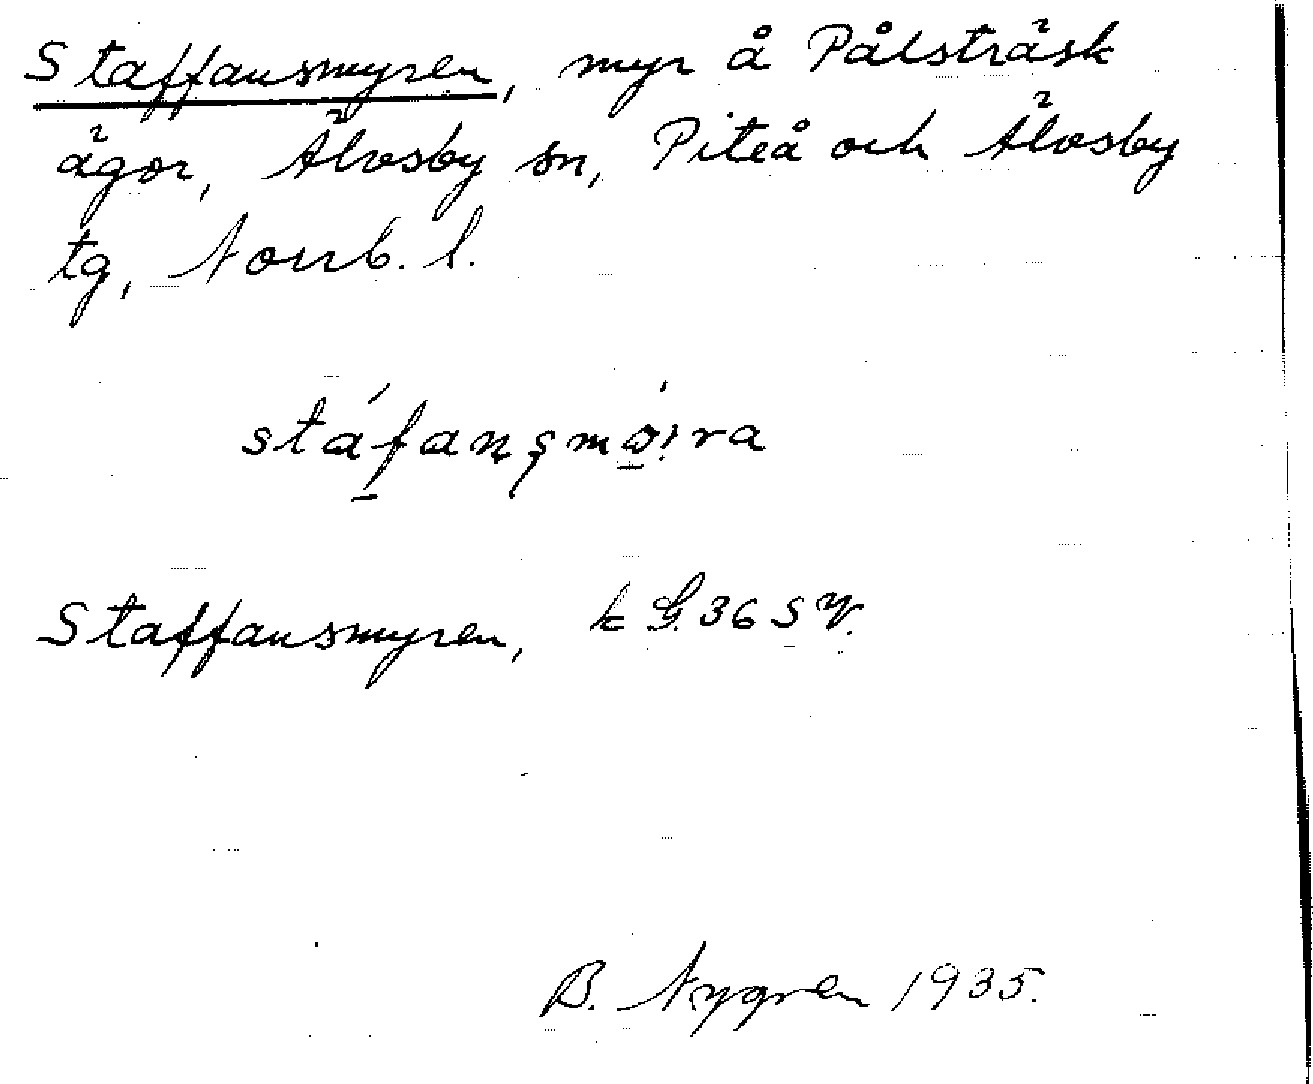 Staffansmyren, myr å Pålsträsk
ägor, Älvsby sn, Piteå och Älvsby
tg, Norrb. l.
stáfanşmøira
Staffansmyren, k G. 36 S V.
B. Nygren 1935.